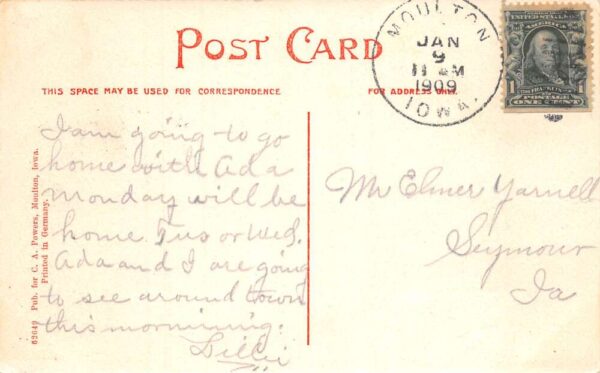 POST CARD
MOULTON
JAN
9
11 AM
1909
IOWA.
UNITED STATES OF AMERICA
FRANKLIN
1 POSTAGE 1
ONE CENT
THIS SPACE MAY BE USED FOR CORRESPONDENCE.
FOR ADDRESS ONLY.
I am going to go
home with Ada
monday will be
home Tus or Wed.
Ada and I are going
to see around town
this mornining.
Lillii
Mr Elmer Yarnell
Seymour
Ia
52649 Pub. for C. A. Powers, Moulton, Iowa.
Printed in Germany.